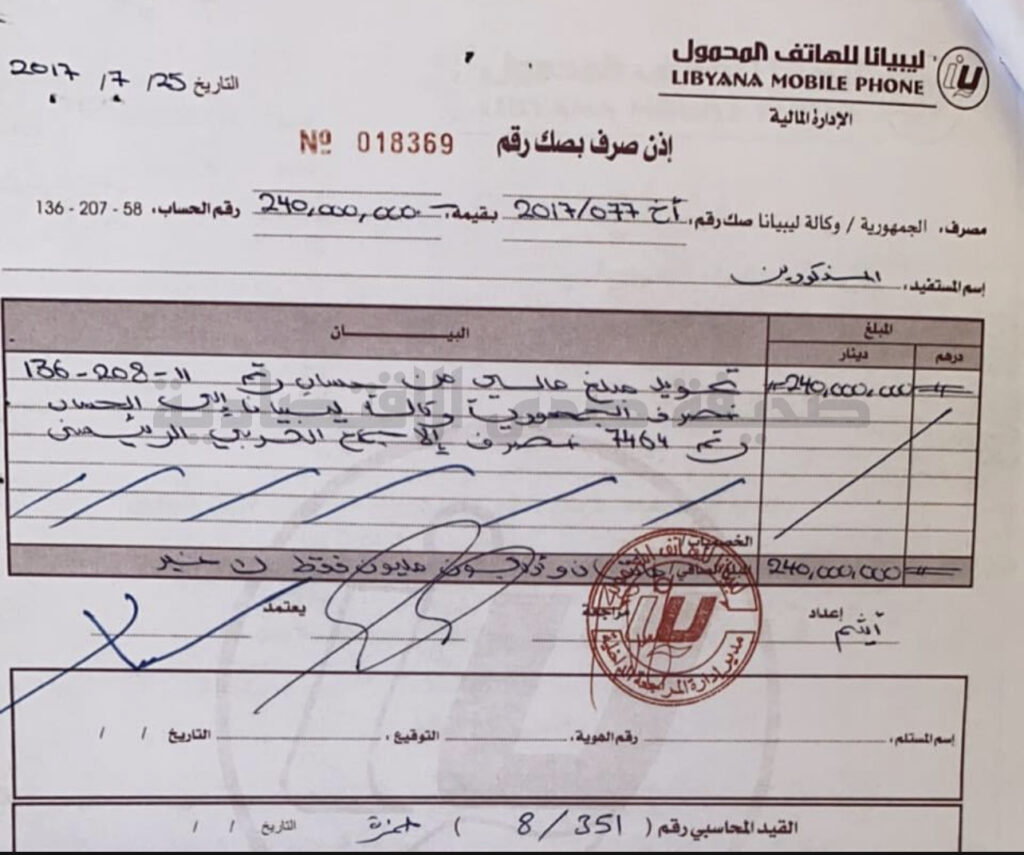 ليبيانا للهاتف المحمول
LIBYANA MOBILE PHONE
الإدارة المالية
التاريخ 25/ 7/ 2017
إذن صرف بصك رقم № 018369
مصرف، الجمهورية / وكالة ليبيانا صك رقم، أخ 2017/077 بقيمة، 240,000,000 رقم الحساب، 58 - 207 - 136
إسم المستفيد، المذكورين
المبلغ البيــــان
درهم دينار
240,000,000 مبلغ مالي من حساب رقم 11-208-136
مصرف الجمهورية وكالة ليبيانا إلى الحساب
رقم 7464 مصرف الإجماع العربي الرئيسي
صحيفة صدى الإقتصادية
الخصميات
240,000,000 مليون فقط
إعداد مراجعة يعتمد
مدير إدارة المراجعة الداخلية
إسم المستلم، رقم الهوية، التوقيع، التاريخ / /
القيد المحاسبي رقم ( 351 / 8 ) حمزة التاريخ / /